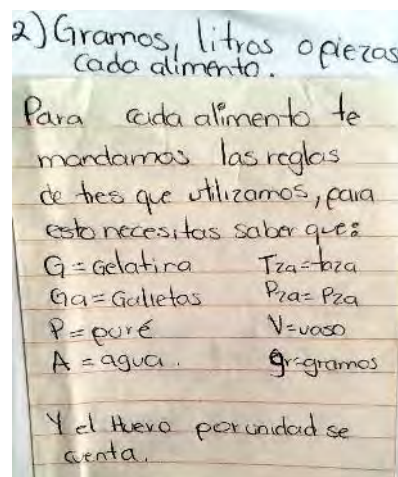 2) Gramos, litros o piezas
cada alimento.
Para cada alimento te
mandamos las reglas
de tres que utilizamos, para
esto necesitas saber que:
G = Gelatina Tza = taza
Ga = Galletas Pza = Pza
P = puré V = vaso
A = agua. gr = gramos
Y el Huevo por unidad se
cuenta.